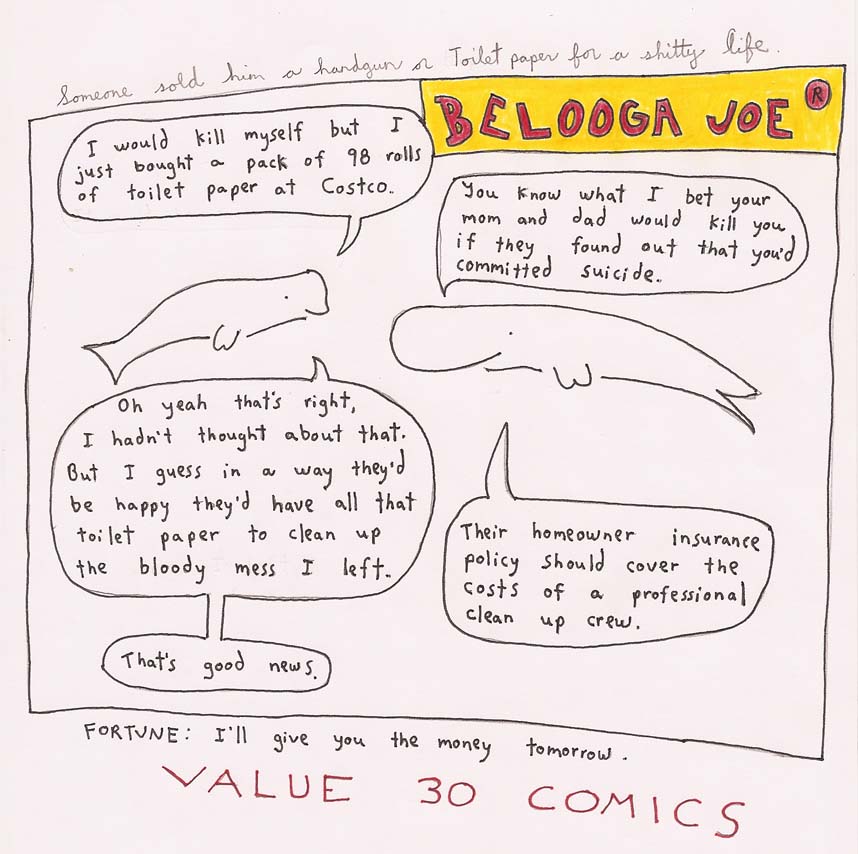 Someone sold him a handgun or Toilet paper for a shitty life.
BELOOGA JOE ®
I would kill myself but I
just bought a pack of 98 rolls
of toilet paper at Costco..
You know what I bet your
mom and dad would kill you
if they found out that you'd
committed suicide..
Oh yeah that's right,
I hadn't thought about that.
But I guess in a way they'd
be happy they'd have all that
toilet paper to clean up
the bloody mess I left..
Their homeowner insurance
policy should cover the
costs of a professional
clean up crew.
That's good news.
FORTUNE: I'll give you the money tomorrow.
VALUE 30 COMICS